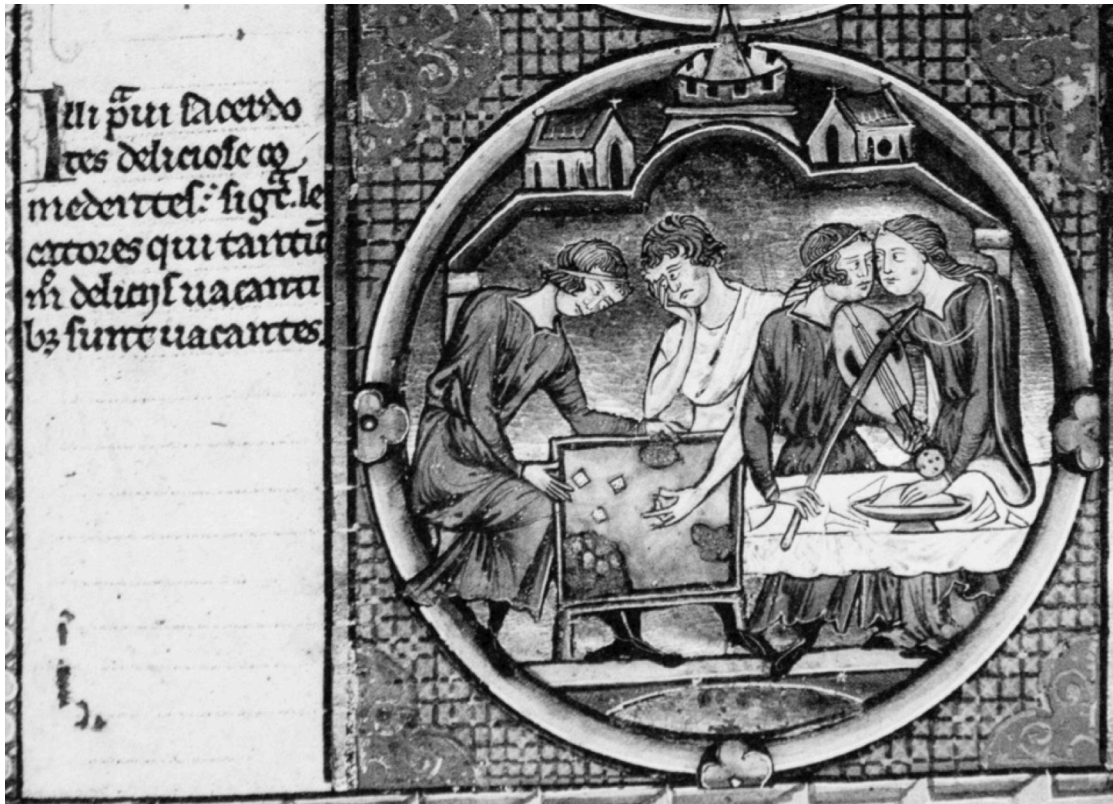 Illi pᵃui sacerdo
tes deliciose co
medentes: sigᵃt. le
catores qui tantū
m̊ delicijs uacanti
bꝫ sunt uacantes.